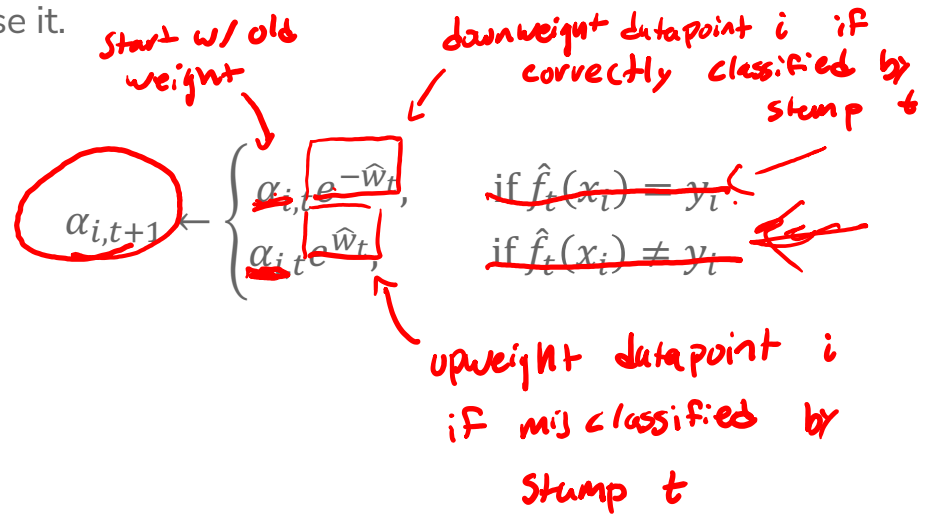 se it.
start w/ old
weight
downweight datapoint i if
correctly classified by
stump t
α_{i,t+1} ← { α_{i,t}e^{-ŵ_t}, if f̂_t(x_i) = y_i
α_{i,t}e^{ŵ_t}, if f̂_t(x_i) ≠ y_i
upweight datapoint i
if misclassified by
stump t